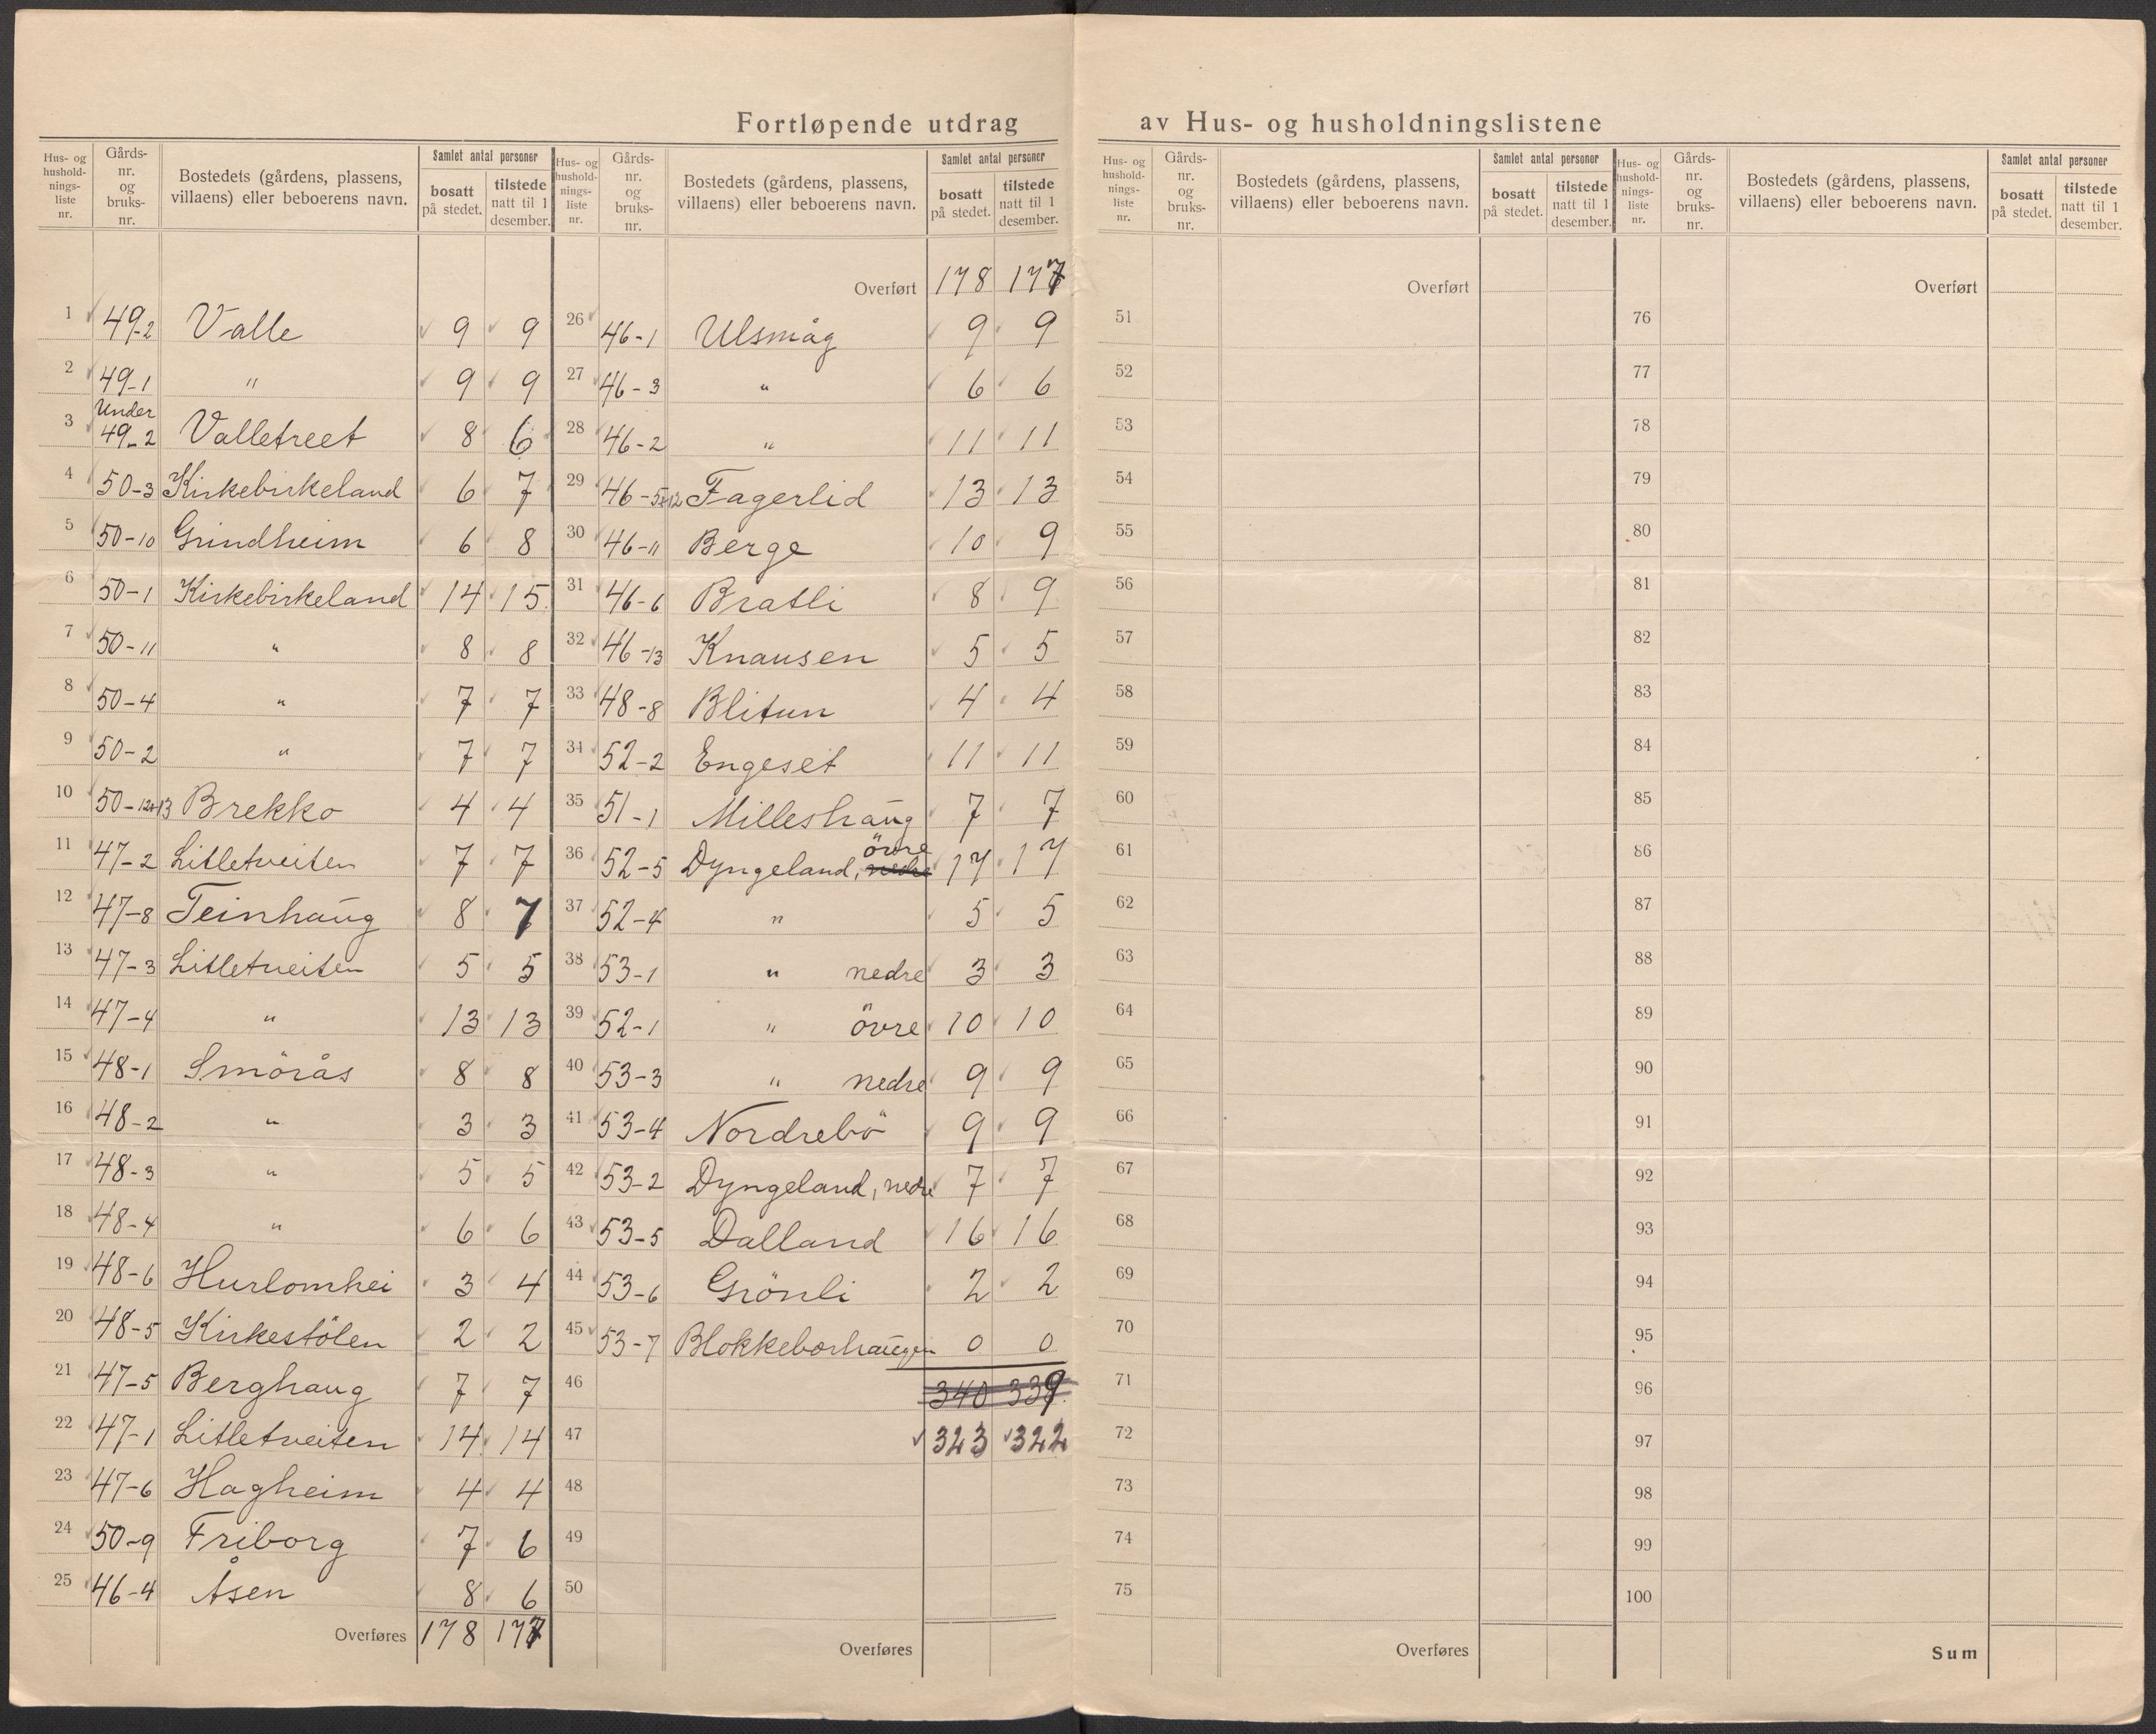 Fortløpende utdrag av Hus- og husholdningslistene
Hus- og husholdnings-liste nr. | Gårds-nr. og bruks-nr. | Bostedets (gårdens, plassens, villaens) eller beboerens navn. | Samlet antal personer | bosatt på stedet. | tilstede natt til 1 desember.
1 49-2 Valle 9 9
2 49-1 " 9 9
3 Under 49-2 Valletreet 8 6
4 50-3 Kirkebirkeland 6 7
5 50-10 Grindheim 6 8
6 50-1 Kirkebirkeland 14 15
7 50-11 " 8 8
8 50-4 " 7 7
9 50-2 " 7 7
10 50-12+13 Brekko 4 4
11 47-2 Litletveiten 7 7
12 47-8 Teinhaug 8 7
13 47-3 Litletveiten 5 5
14 47-4 " 13 13
15 48-1 Smörås 8 8
16 48-2 " 3 3
17 48-3 " 5 5
18 48-4 " 6 6
19 48-6 Hurlomhei 3 4
20 48-5 Kirkestölen 2 2
21 47-5 Berghaug 7 7
22 47-1 Litletveiten 14 14
23 47-6 Hagheim 4 4
24 50-9 Friborg 7 6
25 46-4 Åsen 8 6
Overføres 178 177
Hus- og husholdnings-liste nr. | Gårds-nr. og bruks-nr. | Bostedets (gårdens, plassens, villaens) eller beboerens navn. | Samlet antal personer | bosatt på stedet. | tilstede natt til 1 desember.
Overført 178 177
26 46-1 Ulsmåg 9 9
27 46-3 " 6 6
28 46-2 " 11 11
29 46-5+12 Fagerlid 13 13
30 46-11 Berge 10 9
31 46-6 Bratli 8 9
32 46-13 Knausen 5 5
33 48-8 Blitun 4 4
34 52-2 Engeset 11 11
35 51-1 Milleshaug 7 7
36 52-5 Dyngeland, nedre övre 17 17
37 52-4 " 5 5
38 53-1 " nedre 3 3
39 52-1 " övre 10 10
40 53-3 " nedre 9 9
41 53-4 Nordrebö 9 9
42 53-2 Dyngeland, nedre 7 7
43 53-5 Dalland 16 16
44 53-6 Grönli 2 2
45 53-7 Blokkeborhaugen 0 0
46 340 339
47 323 322
48
49
50
Overføres
Hus- og husholdnings-liste nr. | Gårds-nr. og bruks-nr. | Bostedets (gårdens, plassens, villaens) eller beboerens navn. | Samlet antal personer | bosatt på stedet. | tilstede natt til 1 desember.
Overført
51
52
53
54
55
56
57
58
59
60
61
62
63
64
65
66
67
68
69
70
71
72
73
74
75
Overføres
Hus- og husholdnings-liste nr. | Gårds-nr. og bruks-nr. | Bostedets (gårdens, plassens, villaens) eller beboerens navn. | Samlet antal personer | bosatt på stedet. | tilstede natt til 1 desember.
Overført
76
77
78
79
80
81
82
83
84
85
86
87
88
89
90
91
92
93
94
95
96
97
98
99
100
Sum